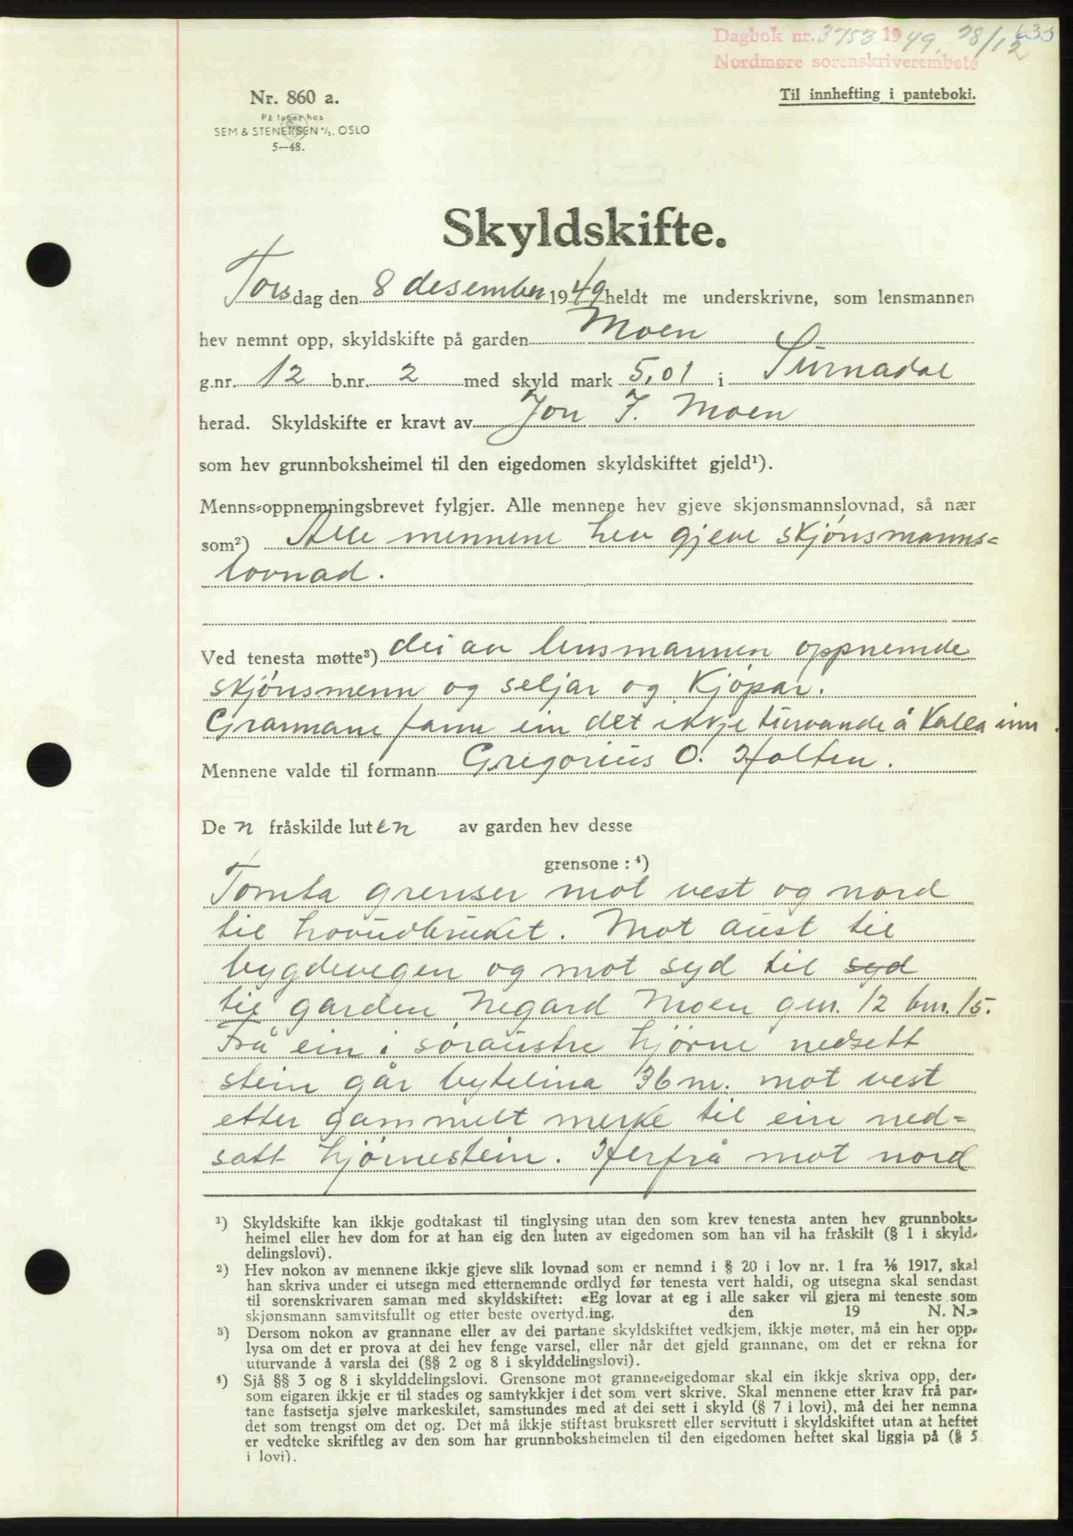 Dagbok nr. 3753 1949. 28/12 633
Nordmøre sorenskriverembete
Nr. 860 a.
Til innhefting i panteboki.
På lager hos
SEM & STENERSEN A/S. OSLO
5—48.
Skyldskifte.
Torsdag den 8 desember 1949 heldt me underskrivne, som lensmannen
hev nemnt opp, skyldskifte på garden Moen
g.nr. 12 b.nr. 2 med skyld mark 5,01 i Surnadal
herad. Skyldskifte er kravt av Jon J. Moen
som hev grunnboksheimel til den eigedomen skyldskiftet gjeld¹).
Menns-oppnemningsbrevet fylgjer. Alle mennene hev gjeve skjønsmannslovnad, så nær
som²) Alle mennene hev gjeve skjønsmanns=
lovnad.
Ved tenesta møtte³) dei av lensmannen oppnemde
skjønsmenn og seljar og kjøpar.
Grannane fann ein det ikkje turvande å kalla inn.
Mennene valde til formann Gregorius O. Holten.
De n fråskilde luten av garden hev desse
grensone : ⁴)
Tomta grenser mot vest og nord
til hovudbruket. Mot aust til
bygdevegen og mot syd til syd
til garden Negard Moen gnr. 12 bnr. 15.
Frå ein i søraustre hjørne nedsett
stein går bytelina 36 m. mot vest
etter gammelt merke til ein ned=
satt hjørnestein. Herfrå mot nord
¹) Skyldskifte kan ikkje godtakast til tinglysing utan den som krev tenesta anten hev grunnboks-
heimel eller hev dom for at han eig den luten av eigedomen som han vil ha fråskilt (§ 1 i skyld-
delingslovi).
²) Hev nokon av mennene ikkje gjeve slik lovnad som er nemnd i § 20 i lov nr. 1 fra ⅙ 1917, skal
han skriva under ei utsegn med etternemnde ordlyd før tenesta vert haldi, og utsegna skal sendast
til sorenskrivaren saman med skyldskiftet: «Eg lovar at eg i alle saker vil gjera mi teneste som
skjønsmann samvitsfullt og etter beste overtyd.ing. den 19 N. N.»
³) Dersom nokon av grannane eller av dei partane skyldskiftet vedkjem, ikkje møter, må ein her opp-
lysa om det er prova at dei hev fenge varsel, eller når det gjeld grannane, om det er rekna for
uturvande å varsla dei (§§ 2 og 8 i skylddelingslovi).
⁴) Sjå §§ 3 og 8 i skylddelingslovi. Grensone mot granne-eigedomar skal ein ikkje skriva opp, der-
som eigaren ikkje er til stades og samtykkjer i det som vert skrive. Skal mennene etter krav frå par-
tane fastsetja sjølve markeskilet, samstundes med at dei sett i skyld (§ 7 i lovi), må dei her nemna
det som trengst om det og. Det må ikkje stiftast bruksrett eller servitutt i skyldskiftet utan at heftet
er vedteke skriftleg av den som har grunnboksheimelen til den eigedomen heftet skal liggja på (§ 5
i lovi).